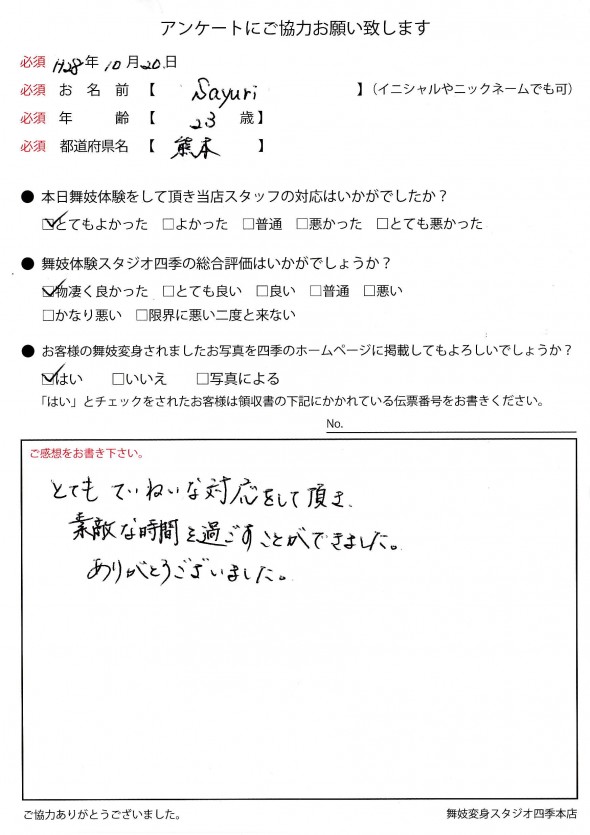 アンケートにご協力お願い致します
必須 H28年 10月20日
必須 お名前 【 Sayuri 】（イニシャルやニックネームでも可）
必須 年齢 【 23 歳】
必須 都道府県名 【 熊本 】
● 本日舞妓体験をして頂き当店スタッフの対応はいかがでしたか？
☑とてもよかった □よかった □普通 □悪かった □とても悪かった
● 舞妓体験スタジオ四季の総合評価はいかがでしょうか？
☑物凄く良かった □とても良い □良い □普通 □悪い
□かなり悪い □限界に悪い二度と来ない
● お客様の舞妓変身されましたお写真を四季のホームページに掲載してもよろしいでしょうか？
☑はい □いいえ □写真による
「はい」とチェックをされたお客様は領収書の下記にかかれている伝票番号をお書きください。
No.
ご感想をお書き下さい。
とても ていねいな対応をして頂き、
素敵な時間を過ごすことができました。
ありがとうございました。
ご協力ありがとうございました。 舞妓変身スタジオ四季本店